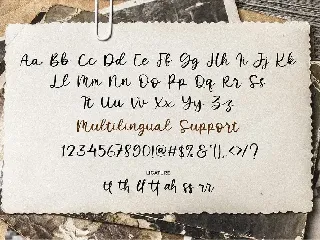 Aa Bb Cc Dd Ee Ff Gg Hh Ii Jj Kk
Ll Mm Nn Oo Pp Qq Rr Ss
Tt Uu Vv Xx Yy Zz
Multilingual Support
12345678901@#$%&'(),.<>/?
LIGATURE
tt th lf tf ah ss rr